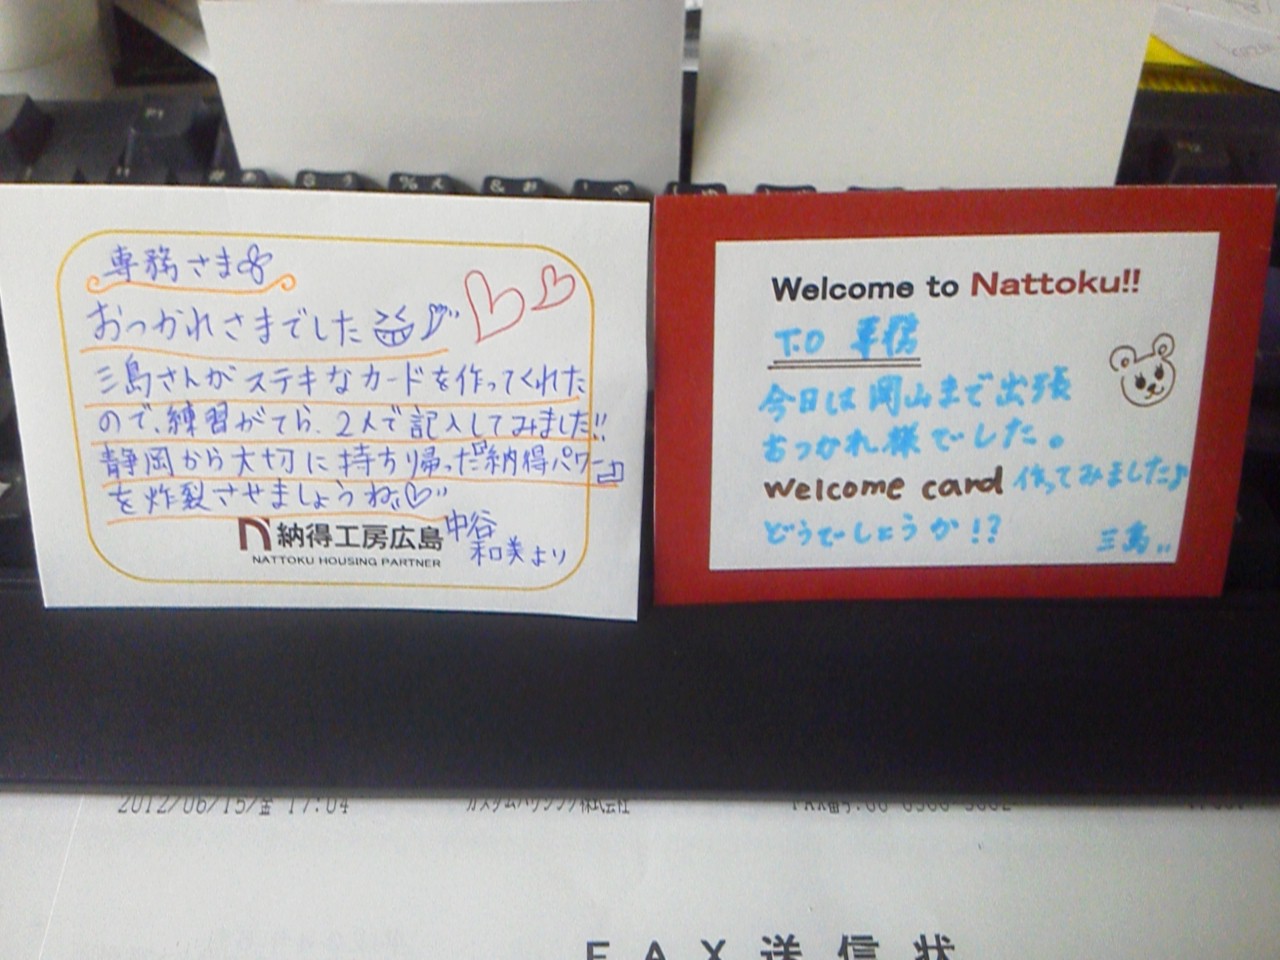 専務さま
おつかれさまでした
三島さんがステキなカードを作ってくれた
ので、練習がてら、2人で記入してみました!!
静岡から大切に持ち帰った『納得パワー』
を炸裂させましょうね♡
納得工房広島
NATTOKU HOUSING PARTNER
中谷
和美より
Welcome to Nattoku!!
T.O 専務
今日は岡山まで出張
おつかれ様でした。
welcome card 作ってみました♪
どうでしょうか!?
三島
2012/06/15/金 17:04
カスタムハウジング株式会社
FAX番号:
FAX送信状